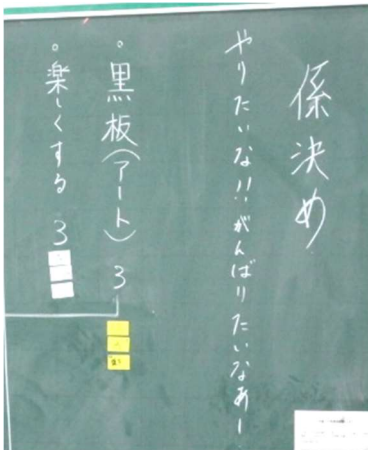 係決め
やりたいな!!がんばりたいなあー
。黒板(アート) 3
。楽しくする 3